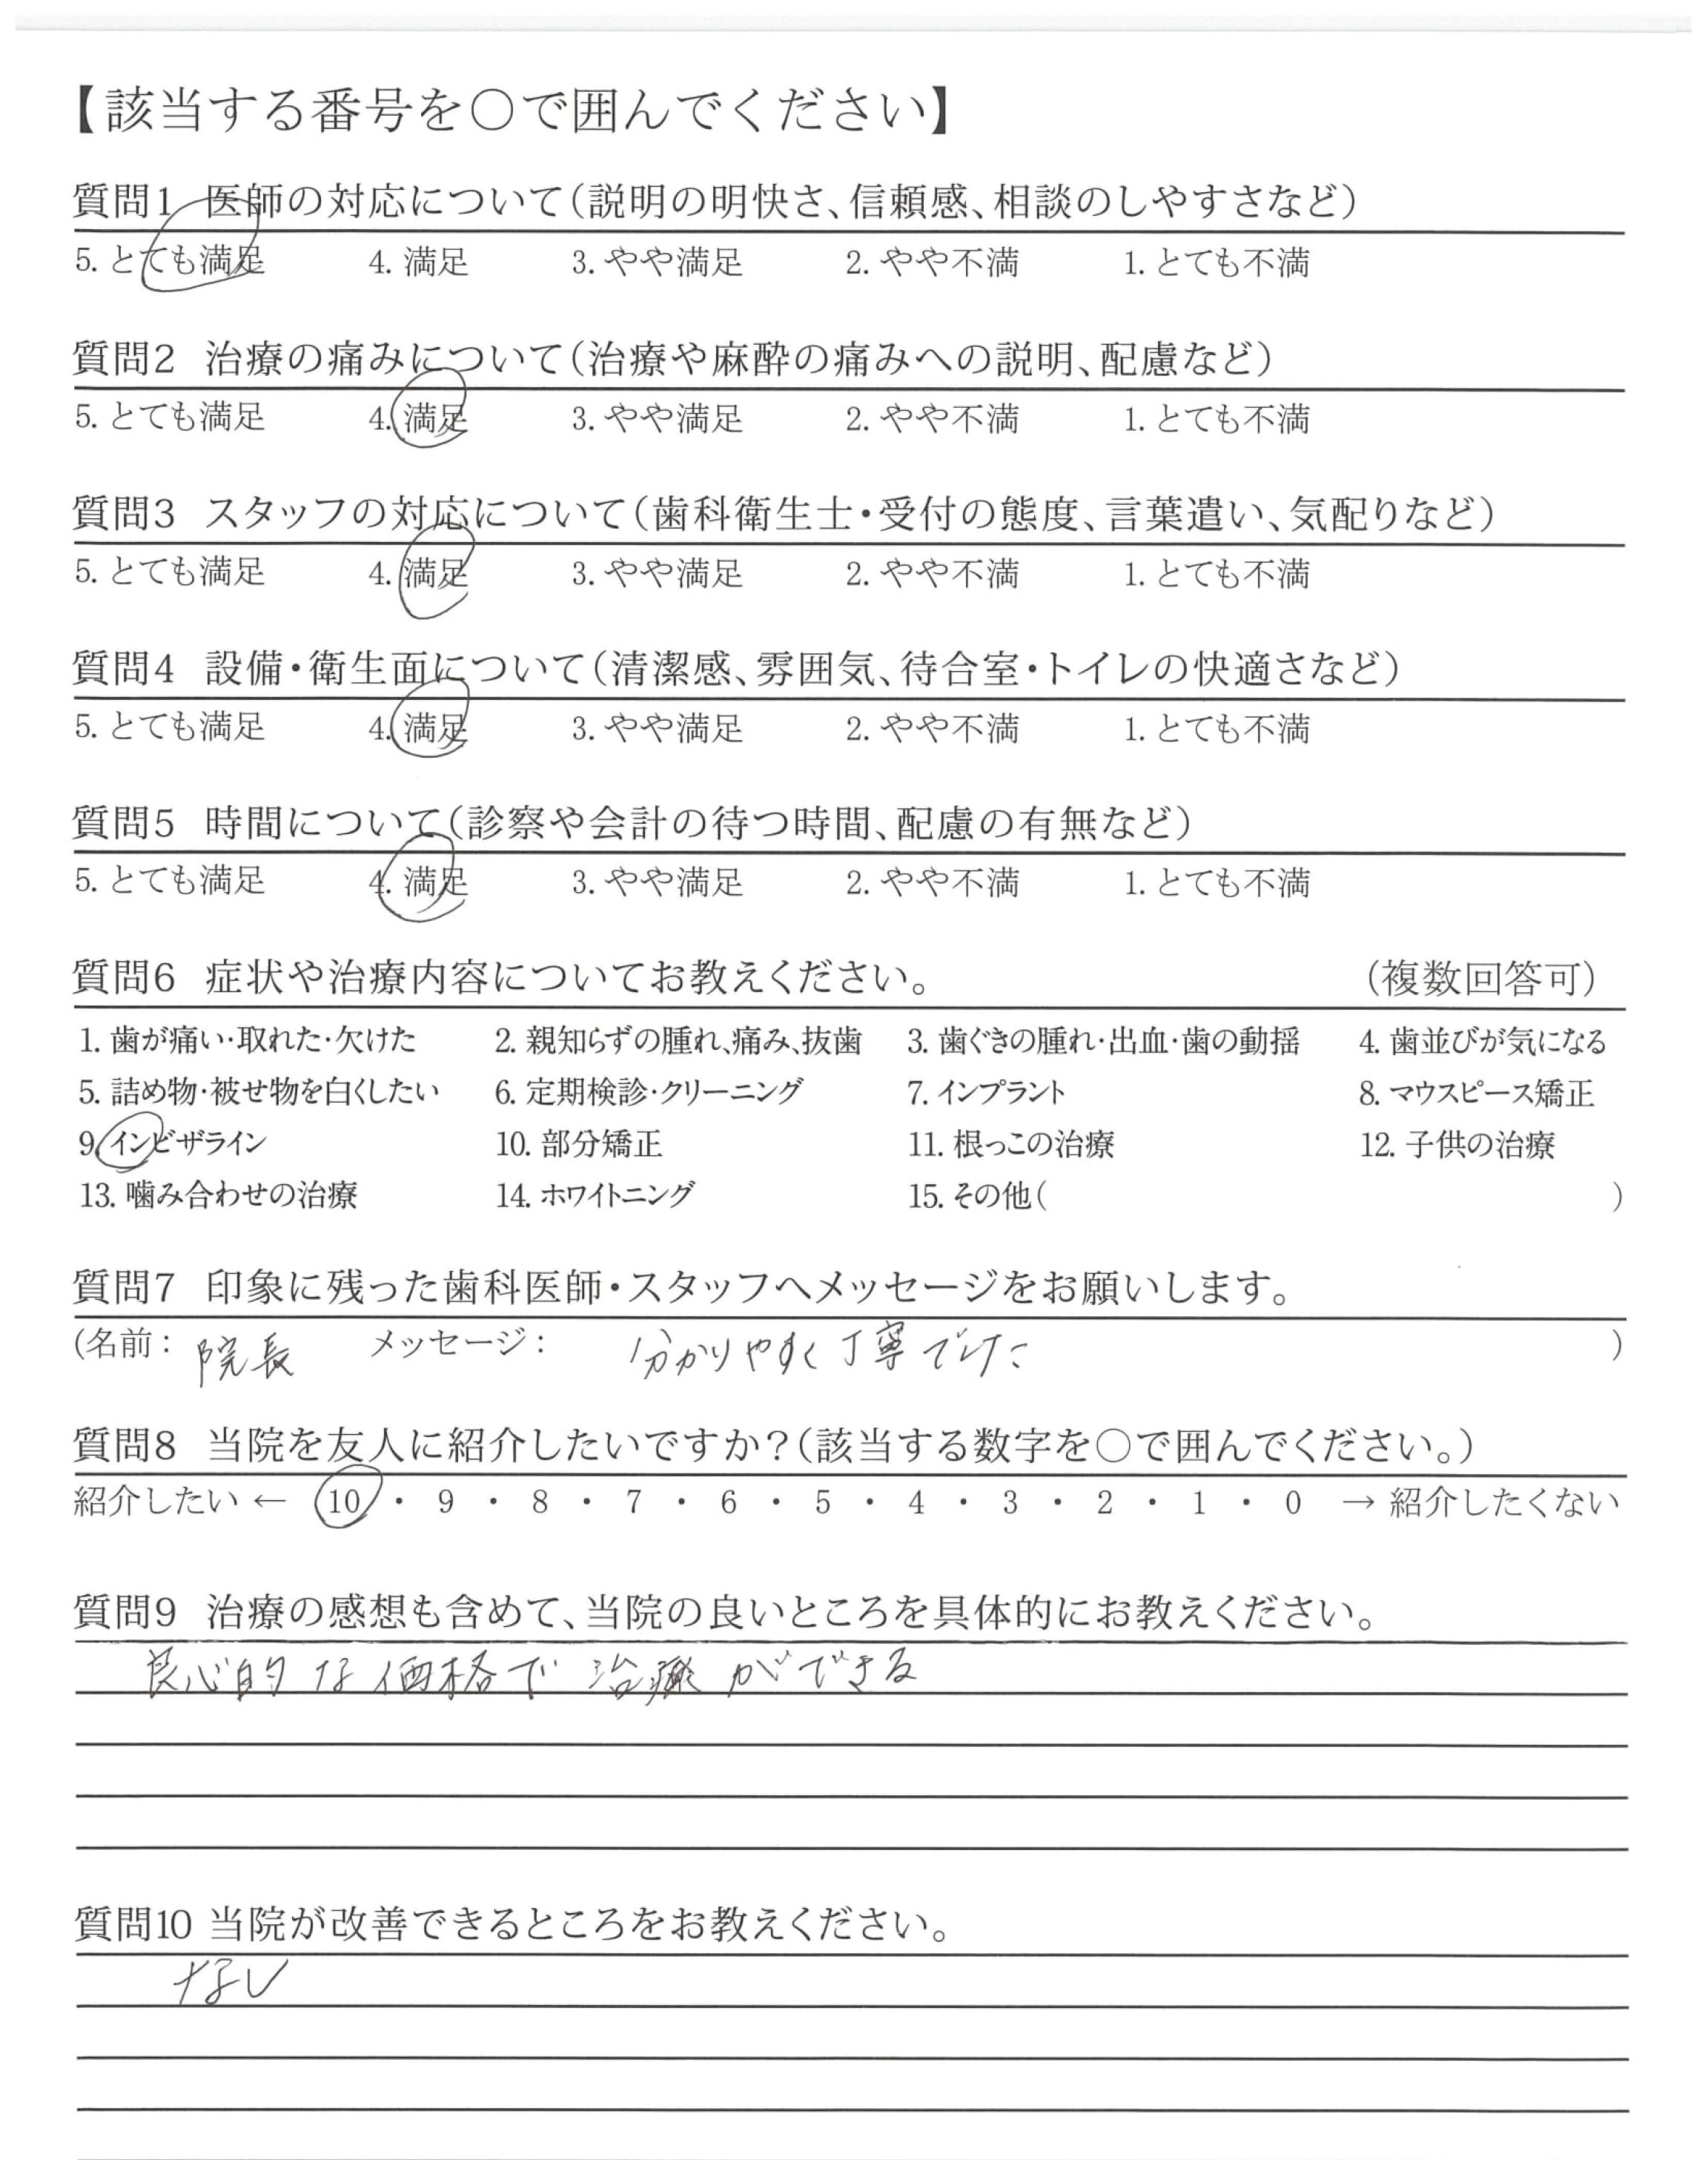 【該当する番号を○で囲んでください】
質問1 医師の対応について(説明の明快さ、信頼感、相談のしやすさなど)
5. とても満足 4. 満足 3. やや満足 2. やや不満 1. とても不満
質問2 治療の痛みについて(治療や麻酔の痛みへの説明、配慮など)
5. とても満足 4. 満足 3. やや満足 2. やや不満 1. とても不満
質問3 スタッフの対応について(歯科衛生士・受付の態度、言葉遣い、気配りなど)
5. とても満足 4. 満足 3. やや満足 2. やや不満 1. とても不満
質問4 設備・衛生面について(清潔感、雰囲気、待合室・トイレの快適さなど)
5. とても満足 4. 満足 3. やや満足 2. やや不満 1. とても不満
質問5 時間について(診察や会計の待つ時間、配慮の有無など)
5. とても満足 4. 満足 3. やや満足 2. やや不満 1. とても不満
質問6 症状や治療内容についてお教えください。 (複数回答可)
1. 歯が痛い・取れた・欠けた 2. 親知らずの腫れ、痛み、抜歯 3. 歯ぐきの腫れ・出血・歯の動揺 4. 歯並びが気になる
5. 詰め物・被せ物を白くしたい 6. 定期検診・クリーニング 7. インプラント 8. マウスピース矯正
9. インビザライン 10. 部分矯正 11. 根っこの治療 12. 子供の治療
13. 噛み合わせの治療 14. ホワイトニング 15. その他( )
質問7 印象に残った歯科医師・スタッフへメッセージをお願いします。
(名前: 院長 メッセージ: 分かりやすく丁寧でした )
質問8 当院を友人に紹介したいですか?(該当する数字を○で囲んでください。)
紹介したい ← 10 ・ 9 ・ 8 ・ 7 ・ 6 ・ 5 ・ 4 ・ 3 ・ 2 ・ 1 ・ 0 → 紹介したくない
質問9 治療の感想も含めて、当院の良いところを具体的にお教えください。
良心的な価格で治療ができる
質問10 当院が改善できるところをお教えください。
なし